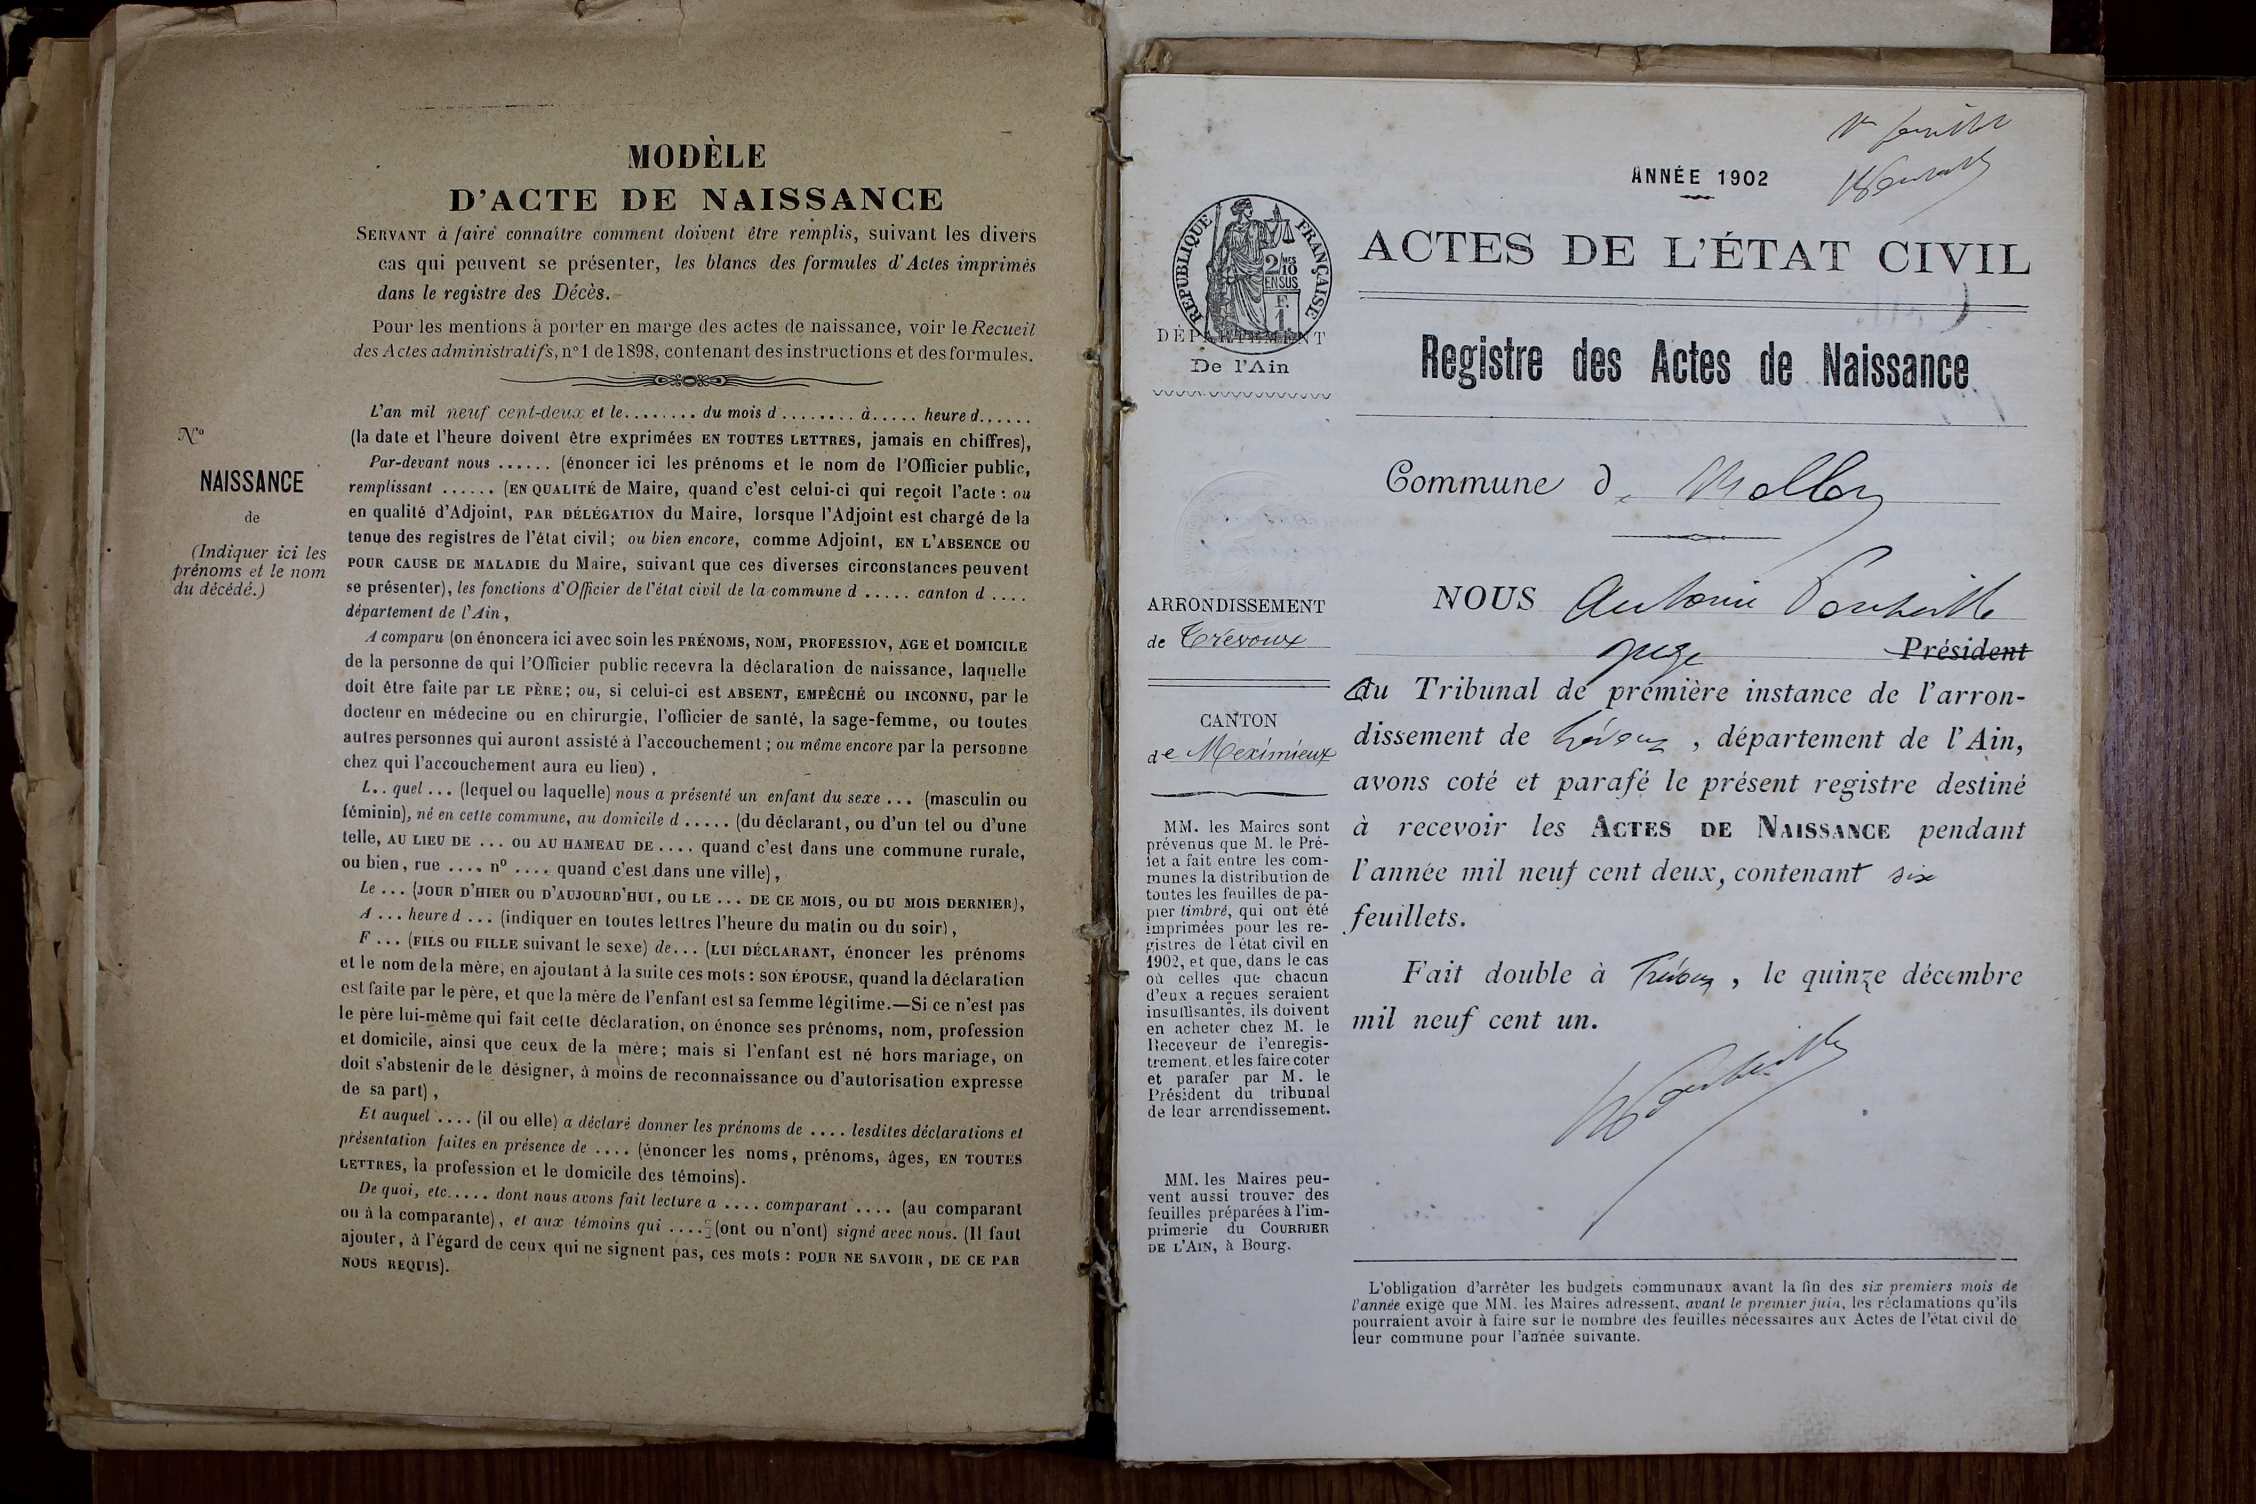 MODÈLE
D'ACTE DE NAISSANCE
SERVANT à faire connaître comment doivent être remplis, suivant les divers
cas qui peuvent se présenter, les blancs des formules d'Actes imprimés
dans le registre des Décès.
Pour les mentions à porter en marge des actes de naissance, voir le Recueil
des Actes administratifs, n° 1 de 1898, contenant des instructions et des formules.
N°
NAISSANCE
de
(Indiquer ici les
prénoms et le nom
du décédé.)
L'an mil neuf cent-deux et le........ du mois d........ à..... heure d......
(la date et l'heure doivent être exprimées EN TOUTES LETTRES, jamais en chiffres),
Par-devant nous ...... (énoncer ici les prénoms et le nom de l'Officier public,
remplissant ...... (EN QUALITÉ de Maire, quand c'est celui-ci qui reçoit l'acte : ou
en qualité d'Adjoint, PAR DÉLÉGATION du Maire, lorsque l'Adjoint est chargé de la
tenue des registres de l'état civil; ou bien encore, comme Adjoint, EN L'ABSENCE OU
POUR CAUSE DE MALADIE du Maire, suivant que ces diverses circonstances peuvent
se présenter), les fonctions d'Officier de l'état civil de la commune d ..... canton d ....
département de l'Ain,
A comparu (on énoncera ici avec soin les PRÉNOMS, NOM, PROFESSION, AGE et DOMICILE
de la personne de qui l'Officier public recevra la déclaration de naissance, laquelle
doit être faite par LE PÈRE; ou, si celui-ci est ABSENT, EMPÊCHÉ OU INCONNU, par le
docteur en médecine ou en chirurgie, l'officier de santé, la sage-femme, ou toutes
autres personnes qui auront assisté à l'accouchement ; ou même encore par la personne
chez qui l'accouchement aura eu lieu),
L.. quel ... (lequel ou laquelle) nous a présenté un enfant du sexe ... (masculin ou
féminin), né en cette commune, au domicile d ..... (du déclarant, ou d'un tel ou d'une
telle, AU LIEU DE ... OU AU HAMEAU DE .... quand c'est dans une commune rurale,
ou bien, rue .... n° .... quand c'est dans une ville),
Le ... (JOUR D'HIER OU D'AUJOURD'HUI, OU LE ... DE CE MOIS, OU DU MOIS DERNIER),
A ... heure d ... (indiquer en toutes lettres l'heure du matin ou du soir),
F ... (FILS OU FILLE suivant le sexe) de... (LUI DÉCLARANT, énoncer les prénoms
et le nom de la mère, en ajoutant à la suite ces mots : SON ÉPOUSE, quand la déclaration
est faite par le père, et que la mère de l'enfant est sa femme légitime.—Si ce n'est pas
le père lui-même qui fait cette déclaration, on énonce ses prénoms, nom, profession
et domicile, ainsi que ceux de la mère; mais si l'enfant est né hors mariage, on
doit s'abstenir de le désigner, à moins de reconnaissance ou d'autorisation expresse
de sa part),
Et auquel .... (il ou elle) a déclaré donner les prénoms de .... lesdites déclarations et
présentation faites en présence de .... (énoncer les noms, prénoms, âges, EN TOUTES
LETTRES, la profession et le domicile des témoins).
De quoi, etc..... dont nous avons fait lecture a .... comparant .... (au comparant
ou à la comparante), et aux témoins qui .... (ont ou n'ont) signé avec nous. (Il faut
ajouter, à l'égard de ceux qui ne signent pas, ces mots : POUR NE SAVOIR, DE CE PAR
NOUS REQUIS).
ANNÉE 1902
RÉPUBLIQUE FRANÇAISE
2/10 EN SUS
F. 1
DÉPARTEMENT
De l'Ain
ACTES DE L'ÉTAT CIVIL
Registre des Actes de Naissance
Commune d
ARRONDISSEMENT
de Trévoux
CANTON
de Meximieux
MM. les Maires sont
prévenus que M. le Pré-
fet a fait entre les com-
munes la distribution de
toutes les feuilles de pa-
pier timbré, qui ont été
imprimées pour les re-
gistres de l'état civil en
1902, et que, dans le cas
où celles que chacun
d'eux a reçues seraient
insuffisantes, ils doivent
en acheter chez M. le
Receveur de l'enregis-
trement, et les faire coter
et parafer par M. le
Président du tribunal
de leur arrondissement.
MM. les Maires peu-
vent aussi trouver des
feuilles préparées à l'im-
primerie du COURRIER
DE L'AIN, à Bourg.
NOUS Antonin
juge Président
du Tribunal de première instance de l'arron-
dissement de Trévoux, département de l'Ain,
avons coté et parafé le présent registre destiné
à recevoir les ACTES DE NAISSANCE pendant
l'année mil neuf cent deux, contenant six
feuillets.
Fait double à Trévoux, le quinze décembre
mil neuf cent un.
L'obligation d'arrêter les budgets communaux avant la fin des six premiers mois de
l'année exige que MM. les Maires adressent, avant le premier juin, les réclamations qu'ils
pourraient avoir à faire sur le nombre des feuilles nécessaires aux Actes de l'état civil de
leur commune pour l'année suivante.